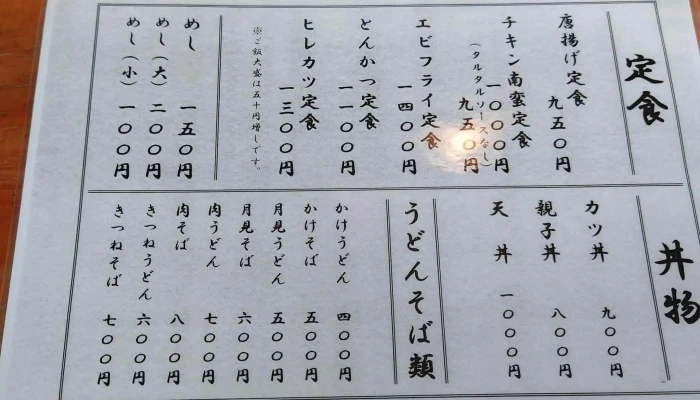 定食
唐揚げ定食 九五〇円
チキン南蛮定食 一〇〇〇円
（タルタルソースなし） 九五〇円
エビフライ定食 一四〇〇円
とんかつ定食 一一〇〇円
ヒレカツ定食 一三〇〇円
※ご飯大盛は五十円増しです。
めし 一五〇円
めし（大） 二〇〇円
めし（小） 一〇〇円
丼物
カツ丼 九〇〇円
親子丼 八〇〇円
天丼 一〇〇〇円
うどんそば類
かけうどん 四〇〇円
かけそば 五〇〇円
月見うどん 五〇〇円
月見そば 六〇〇円
肉うどん 七〇〇円
肉そば 八〇〇円
きつねうどん 六〇〇円
きつねそば 七〇〇円